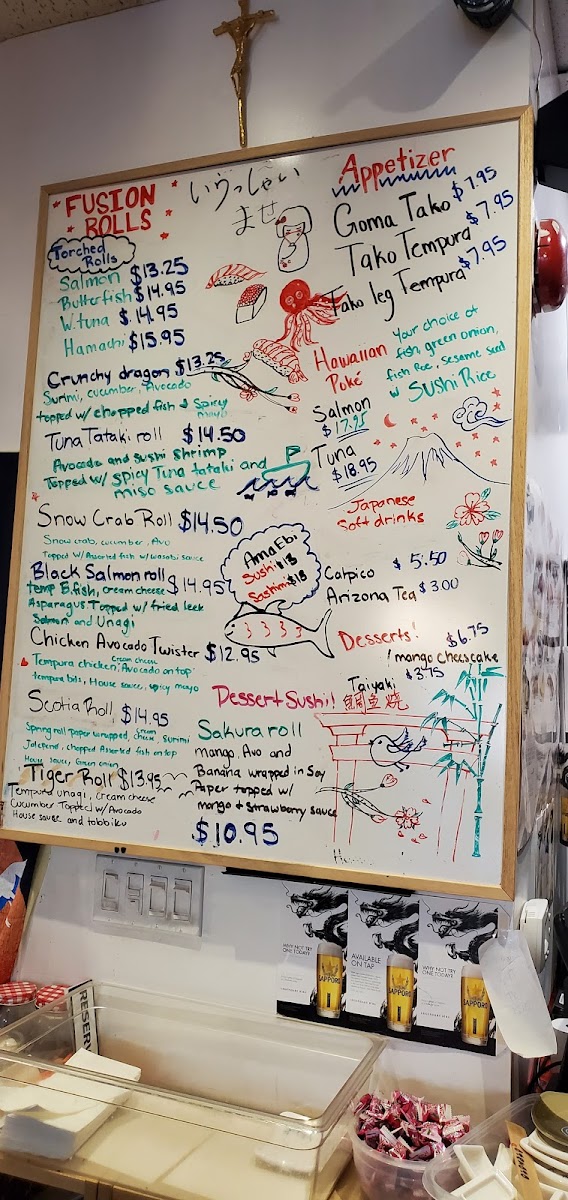 FUSION
ROLLS
Torched
Rolls
Salmon $13.25
Butterfish $14.95
W.tuna $14.95
Hamachi $15.95
Crunchy dragon $13.25
Surimi, cucumber, Avocado
topped w/ chopped fish & Spicy
mayo
Tuna Tataki roll $14.50
Avocado and sushi shrimp
Topped w/ spicy Tuna tataki and
miso sauce
Snow Crab Roll $14.50
Snow crab, cucumber, Avo
Topped w/ Assorted fish w/ wasabi sauce
Black Salmon roll $14.95
temp B.fish, cream cheese
Asparagus Topped w/ fried leek
Salmon and Unagi
Chicken Avocado Twister $12.95
Tempura chicken, cream cheese, Avocado on top
tempura bits, House sauce, spicy mayo
Scotia Roll $14.95
Spring roll paper wrapped, cream cheese, surimi
Jalepeno, chopped Assorted fish on top
House sauce, Green onion
Tiger Roll $13.95
Tempura unagi, cream cheese
Cucumber Topped w/ Avocado
House sauce and tobbiku
いらっしゃい
ませ
Appetizer
Goma Tako $7.95
Tako Tempura $7.95
Tako leg Tempura $7.95
Hawaiian
Poké
Your choice of
fish, green onion,
fish Roe, sesame seed
w SUSHI Rice
Salmon
$17.95
Tuna
$18.95
Japanese
Soft drinks
Calpico $5.50
Arizona Tea $3.00
Ama Ebi
Sushi $13
Sashimi $18
Desserts!
$6.75
mango cheescake
Taiyaki $3.75
Dessert Sushi!
Sakura roll
mango, Avo and
Banana wrapped in Soy
Paper topped w/
mango & strawberry sauce
$10.95
WHY NOT TRY
ONE TODAY?
SAPPORO
AVAILABLE
ON TAP
SAPPORO
WHY NOT TRY
ONE TODAY?
SAPPORO
RESERV